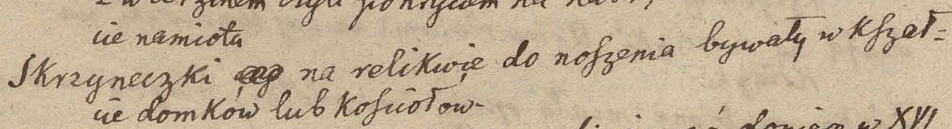 pokryciem na
cie namiotu
Skrzyneczki na relikwie do noszenia bywały w kształ=
cie domków lub kościołow-
w XVI